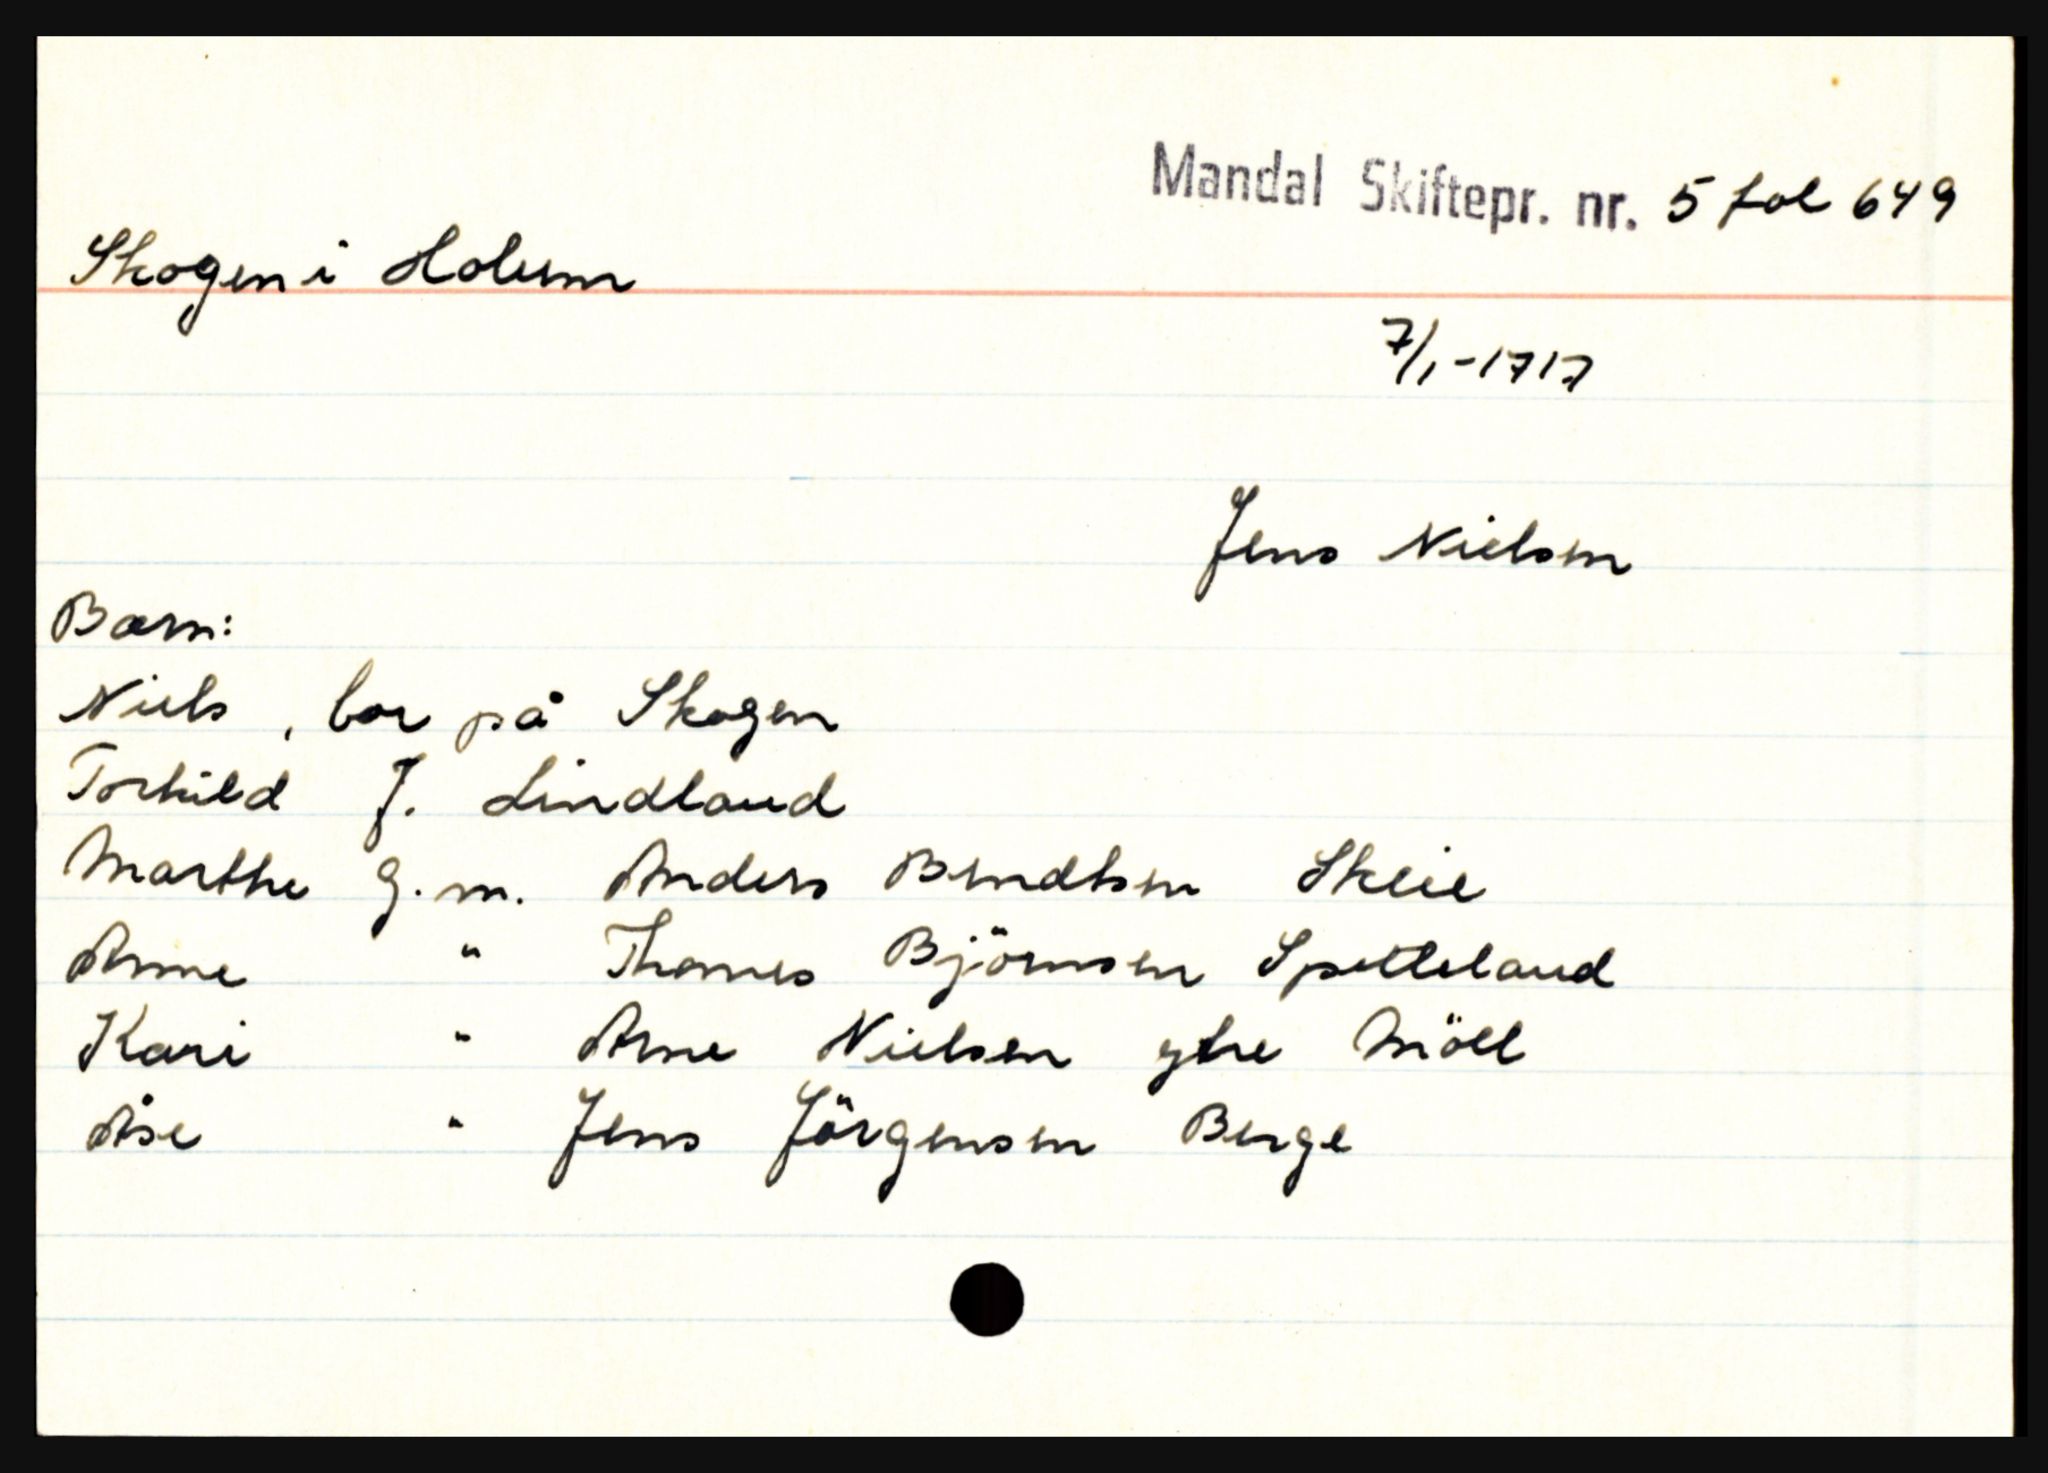 Mandal Skiftepr. nr. 5 fol 649
Skogen i Holum
7/1-1717
Jens Nielsen
Barn:
Niels, bor på Skogen
Torkild J. Lindland
Marthe g.m. Anders Bendtsen Skeie
Anne " Thomes Björnsen Spetteland
Kari " Arne Nielsen ytre Möll
Åse " Jens Jörgensen Berge